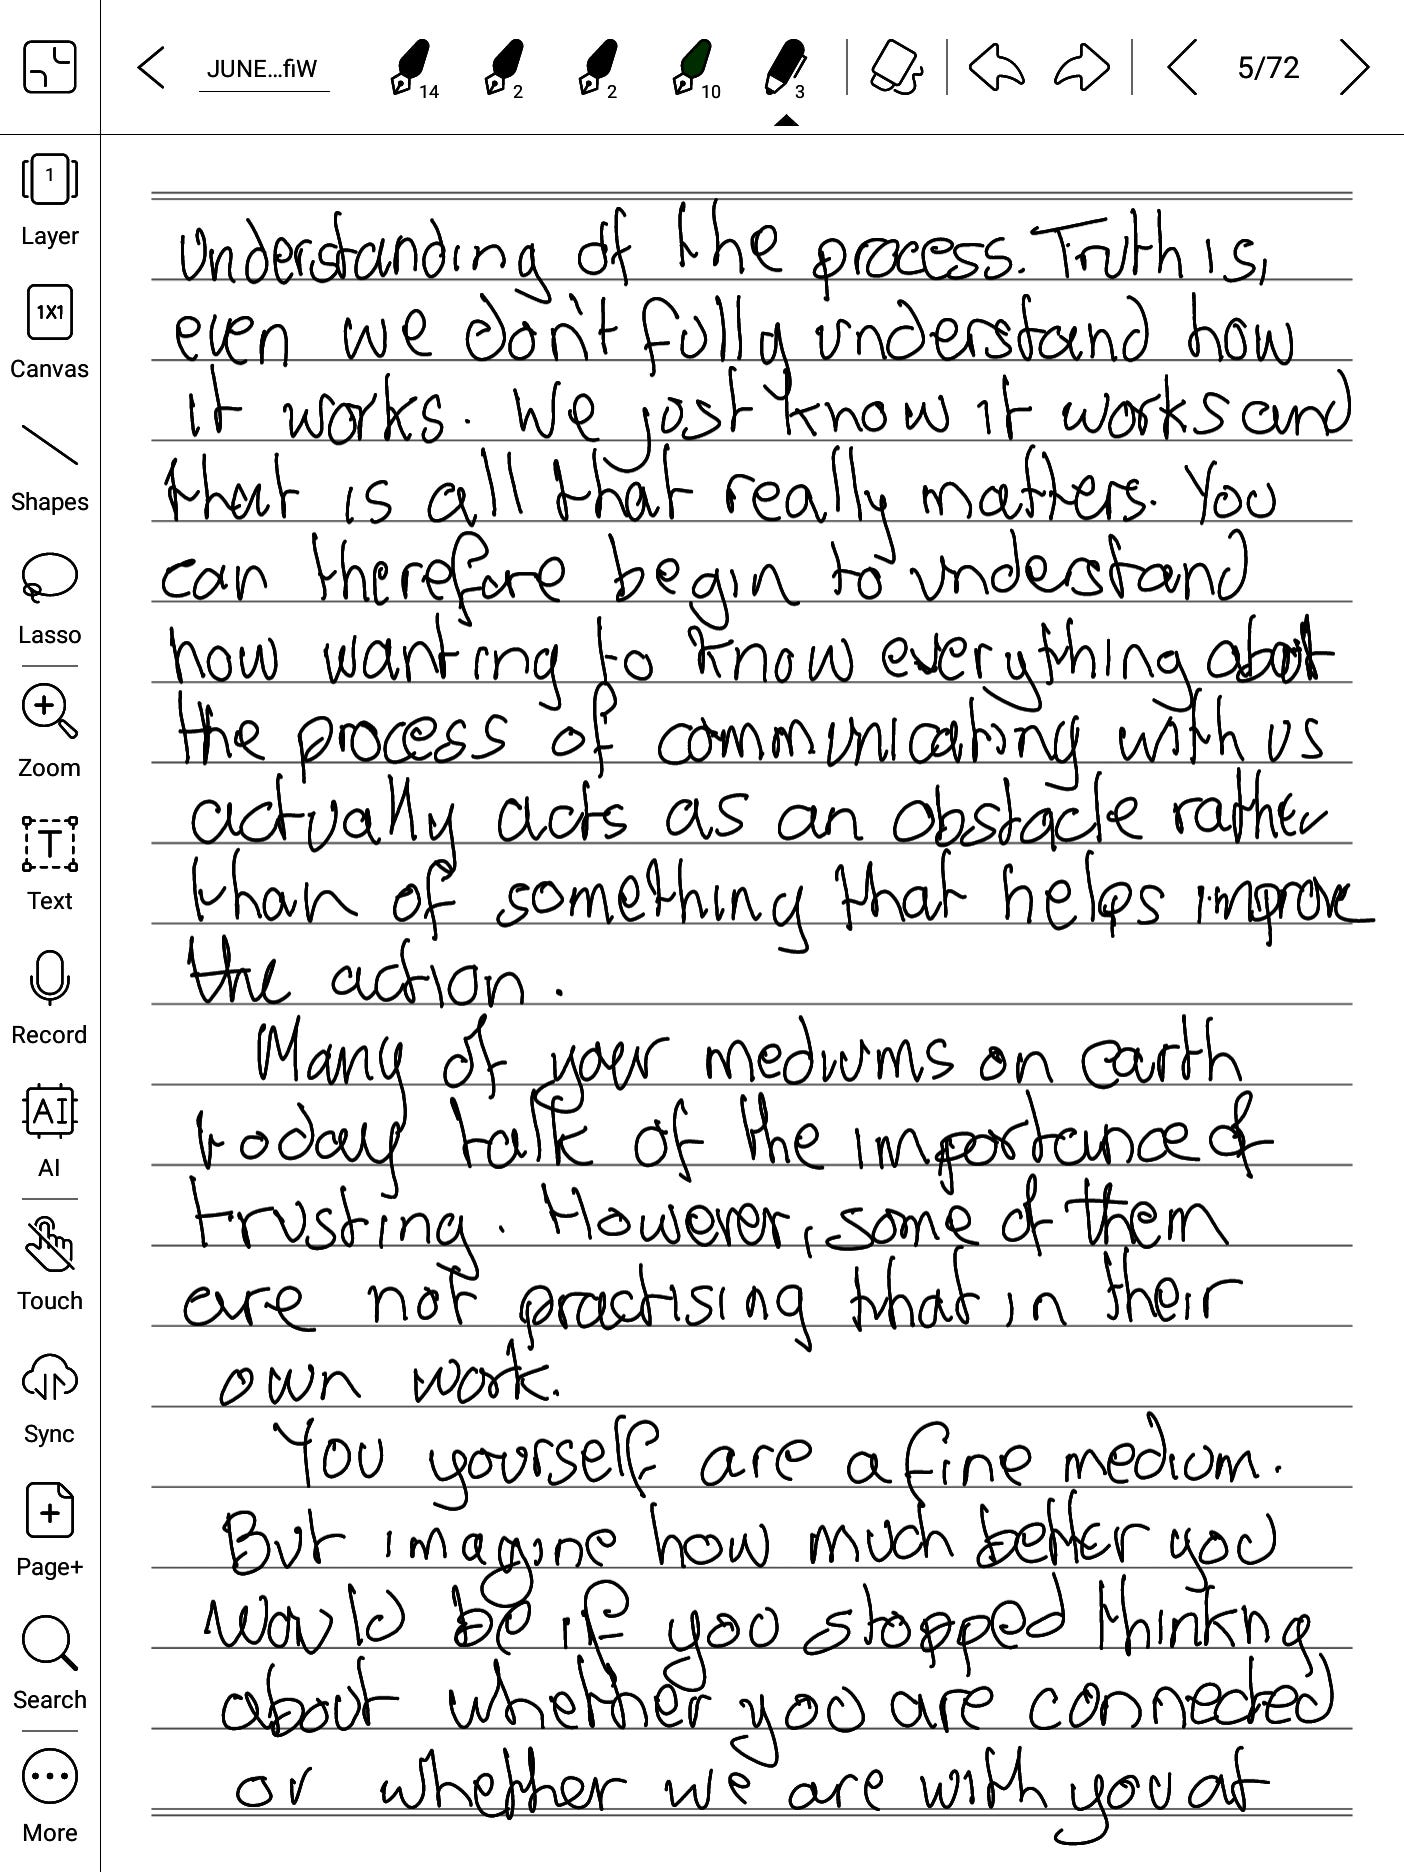 JUNE...fiW
14
2
2
10
3
5/72
1
Layer
1X1
Canvas
Shapes
Lasso
Zoom
T
Text
Record
AI
AI
Touch
Sync
Page+
Search
More
Understanding of the process. Truth is,
even we don't fully understand how
it works. We just know it works and
that is all that really matters. You
can therefore begin to understand
how wanting to know everything about
the process of communicating with us
actually acts as an obstacle rather
than of something that helps improve
the action.
Many of your mediums on earth
today talk of the importance of
trusting. However, some of them
are not practising that in their
own work.
You yourself are a fine medium.
But imagine how much better you
would be if you stopped thinkng
about whether you are connected
or whether we are with you at